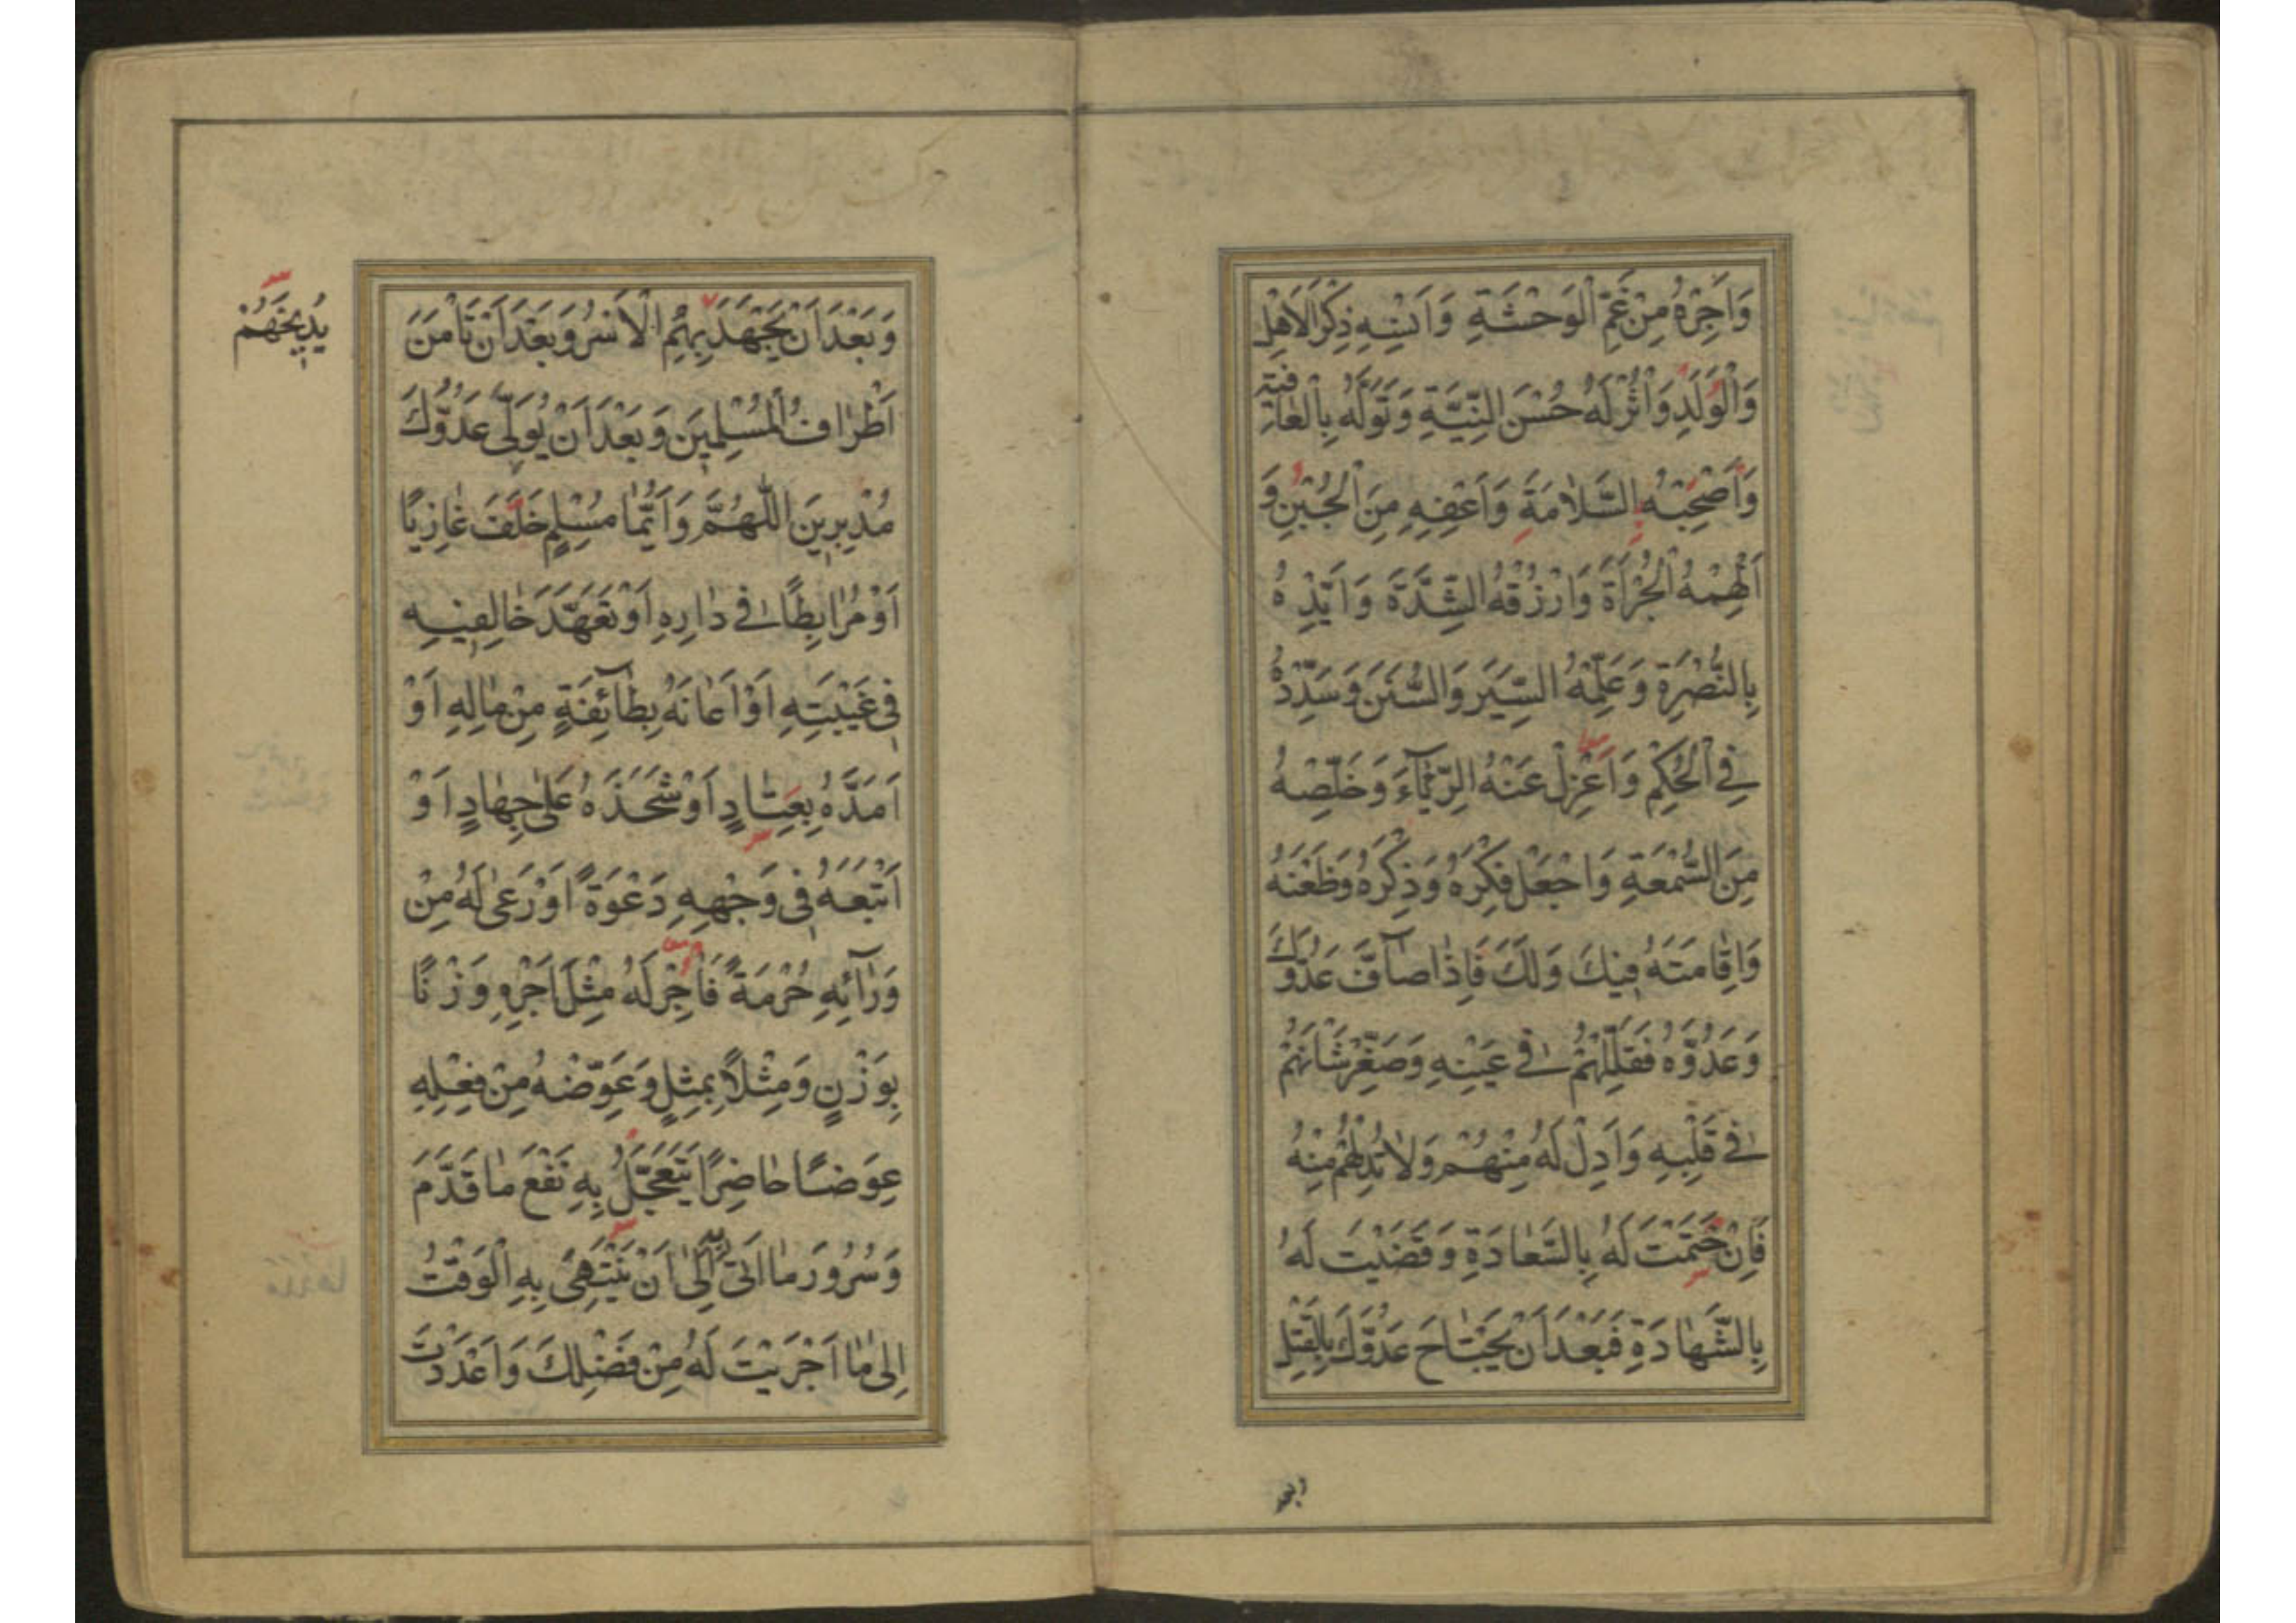 وَاَجِرْهُ مِنْ غَمِّ الْوَحْشَةِ وَاَنْسِهِ ذِكْرَ الْاَهْلِ
وَالْوَلَدِ وَاْثُرْ لَهُ حُسْنَ النِّيَّةِ وَتَوَلَّهُ بِالْعَافِيَةِ
وَاَصْحِبْهُ السَّلَامَةَ وَاَعْفِهِ مِنَ الْجُبْنِ وَ
اَلْهِمْهُ الْجُرْاَةَ وَارْزُقْهُ الشِّدَّةَ وَاَيِّدْهُ
بِالنُّصْرَةِ وَعَلِّمْهُ السِّيَرَ وَالسُّنَنَ وَسَدِّدْهُ
فِي الْحُكْمِ وَاَعْزِلْ عَنْهُ الرِّئَاءَ وَخَلِّصْهُ
مِنَ السُّمْعَةِ وَاجْعَلْ فِكْرَهُ وَذِكْرَهُ وَظَعْنَهُ
وَاِقَامَتَهُ فِيكَ وَلَكَ فَاِذَا صَآفَّ عَدُوَّكَ
وَعَدُوَّهُ فَقَلِّلْهُمْ فِي عَيْنِهِ وَصَغِّرْ شَاْنَهُمْ
فِي قَلْبِهِ وَاَدِلْ لَهُ مِنْهُمْ وَلَا تُدِلْهُمْ مِنْهُ
فَاِنْ خَتَمْتَ لَهُ بِالسَّعَادَةِ وَقَضَيْتَ لَهُ
بِالشَّهَادَةِ فَبَعْدَ اَنْ يَجْتَاحَ عَدُوَّكَ بِالْقَتْلِ
وَبَعْدَ اَنْ يَجْهَدَ بِهِمُ الْاَسْرُ وَبَعْدَ اَنْ تَاْمَنَ
اَطْرَافُ الْمُسْلِمِينَ وَبَعْدَ اَنْ يُوَلِّيَ عَدُوُّكَ
مُدْبِرِينَ اللّٰهُمَّ وَاَيُّمَا مُسْلِمٍ خَلَفَ غَازِيًا
اَوْ مُرَابِطًا فِي دَارِهِ اَوْ تَعَهَّدَ خَالِفِيهِ
فِي غَيْبَتِهِ اَوْ اَعَانَهُ بِطَآئِفَةٍ مِنْ مَالِهِ اَوْ
اَمَدَّهُ بِعِتَادٍ اَوْ شَحَذَهُ عَلٰى جِهَادٍ اَوْ
اَتْبَعَهُ فِي وَجْهِهِ دَعْوَةً اَوْ رَعٰى لَهُ مِنْ
وَرَآئِهِ حُرْمَةً فَاَجِرْ لَهُ مِثْلَ اَجْرِهِ وَزْنًا
بِوَزْنٍ وَمِثْلًا بِمِثْلٍ وَعَوِّضْهُ مِنْ فِعْلِهِ
عِوَضًا حَاضِرًا يَتَعَجَّلُ بِهِ نَفْعَ مَا قَدَّمَ
وَسُرُورَ مَا اَتٰى بِهِ اِلٰى اَنْ يَنْتَهِيَ بِهِ الْوَقْتُ
اِلٰى مَا اَجْرَيْتَ لَهُ مِنْ فَضْلِكَ وَاَعْدَدْتَ